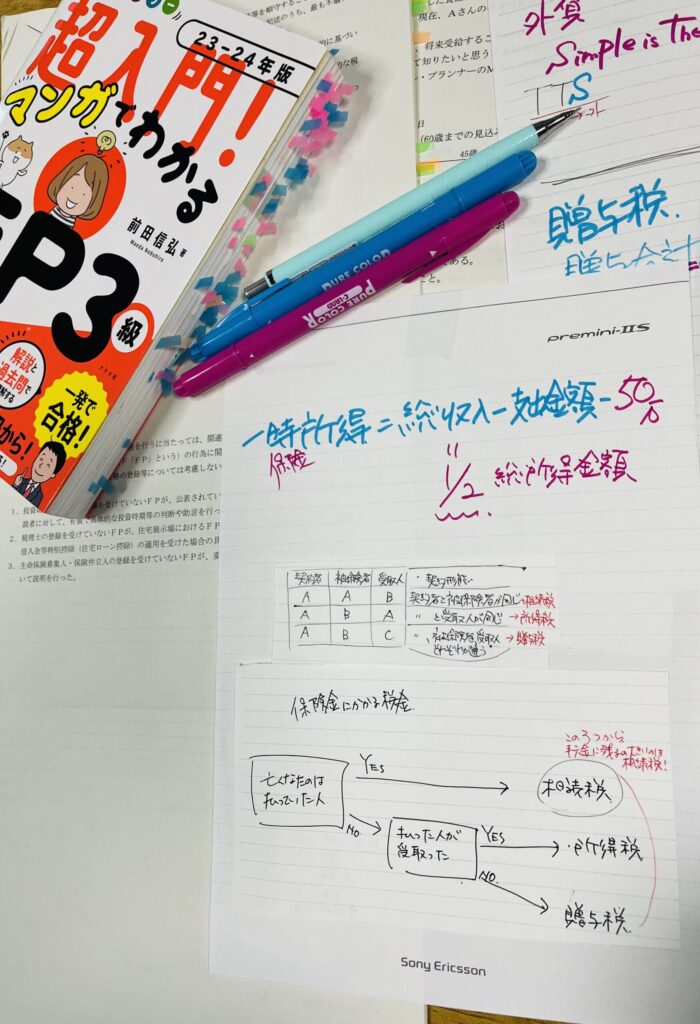 23-24年版
超入門！
マンガでわかる
FP3級
前田信弘 著
Maeda Nobuhiro
ナツメ社
解説と
過去問で
一発で
合格！
から！
現在、Aさんの
将来受給するこ
て知りたいと思う
ン・プランナーのM
(60歳までの見込み
45歳
外貨
Simple is The
TTS
贈与税.
PURE COLOR
PURE COLOR
premini-IIS
一時所得=総収入-支出金額-50万
保険
1/2 総所得金額
を行うに当たっては、関連
「FP」という）の行為に関
の登録等については考慮しない
税理士の登録を受けていないFPが、住宅展示場におけるFP
借入金等特別控除（住宅ローン控除）の適用を受けた場合の
3．生命保険募集人・保険仲立人の登録を受けていないFPが、
いて説明を行った。
契約者 被保険者 受取人 ・契約形態
A A B 契約者と被保険者が同じ→相続税
A B A 〃 と受取人が同じ→所得税
A B C 〃、被保険者、受取人→贈与税
それぞれが違う
保険金にかかる税金
この3つから
相続税！
亡くなったのは
払っていた人
YES
相続税
NO
払った人が
受取った
YES
所得税
NO.
贈与税
Sony Ericsson